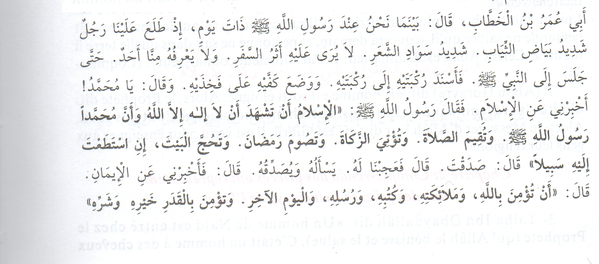 أَبِي عُمَرُ بْنُ الْخَطَّابِ، قَالَ: بَيْنَمَا نَحْنُ عِنْدَ رَسُولِ اللَّهِ ﷺ ذَاتَ يَوْمٍ، إِذْ طَلَعَ عَلَيْنَا رَجُلٌ
شَدِيدُ بَيَاضِ الثِّيَابِ. شَدِيدُ سَوَادِ الشَّعَرِ. لاَ يُرَى عَلَيْهِ أَثَرُ السَّفَرِ. وَلاَ يَعْرِفُهُ مِنَّا أَحَدٌ. حَتَّى
جَلَسَ إِلَى النَّبِيِّ ﷺ. فَأَسْنَدَ رُكْبَتَيْهِ إِلَى رُكْبَتَيْهِ. وَوَضَعَ كَفَّيْهِ عَلَى فَخِذَيْهِ. وَقَالَ: يَا مُحَمَّدُ!
أَخْبِرْنِي عَنِ الْإِسْلَامِ. فَقَالَ رَسُولُ اللَّهِ ﷺ: «الْإِسْلَامُ أَنْ تَشْهَدَ أَنْ لاَ إِلٰهَ إِلاَّ اللَّهُ وَأَنَّ مُحَمَّداً
رَسُولُ اللَّهِ ﷺ. وَتُقِيمَ الصَّلاَةَ. وَتُؤْتِيَ الزَّكَاةَ. وَتَصُومَ رَمَضَانَ. وَتَحُجَّ الْبَيْتَ، إِنِ اسْتَطَعْتَ
إِلَيْهِ سَبِيلاً» قَالَ: صَدَقْتَ. قَالَ فَعَجِبْنَا لَهُ. يَسْأَلُهُ وَيُصَدِّقُهُ. قَالَ: فَأَخْبِرْنِي عَنِ الْإِيمَانِ.
قَالَ: «أَنْ تُؤْمِنَ بِاللَّهِ، وَمَلَائِكَتِهِ، وَكُتُبِهِ، وَرُسُلِهِ، وَالْيَوْمِ الآخِرِ. وَتُؤْمِنَ بِالْقَدَرِ خَيْرِهِ وَشَرِّهِ»